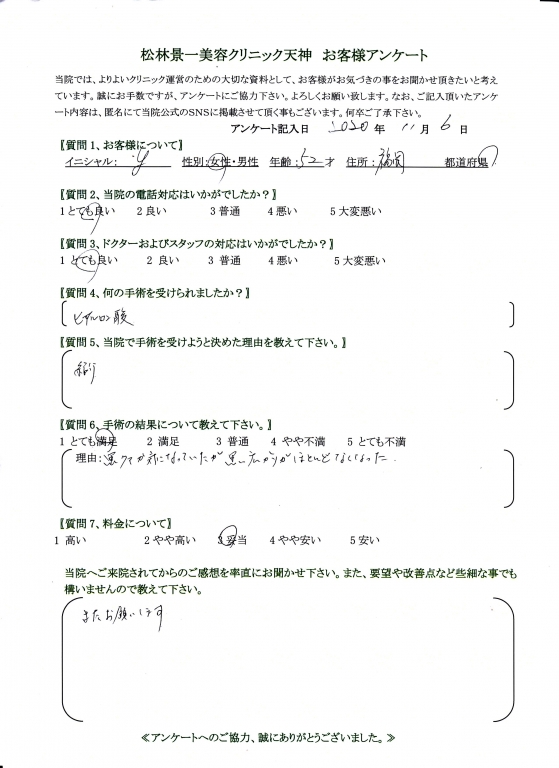 松林景一美容クリニック天神　お客様アンケート
当院では、よりよいクリニック運営のための大切な資料として、お客様がお気づきの事をお聞かせ頂きたいと考え
ています。誠にお手数ですが、アンケートにご協力下さい。よろしくお願い致します。なお、ご記入頂いたアンケ
ート内容は、匿名にて当院公式のSNSに掲載させて頂く事もございます。何卒ご了承下さい。
アンケート記入日 2020 年 11 月 6 日
〖質問 1、お客様について〗
イニシャル： y 性別：女性・男性 年齢：52 才 住所：福岡 都道府県
〖質問 2、当院の電話対応はいかがでしたか？〗
1 とても良い 2 良い 3 普通 4 悪い 5 大変悪い
〖質問 3、ドクターおよびスタッフの対応はいかがでしたか？〗
1 とても良い 2 良い 3 普通 4 悪い 5 大変悪い
〖質問 4、何の手術を受けられましたか？〗
ヒアルロン酸
〖質問 5、当院で手術を受けようと決めた理由を教えて下さい。〗
〖質問 6、手術の結果について教えて下さい。〗
1 とても満足 2 満足 3 普通 4 やや不満 5 とても不満
理由: 黒クマが気になっていたが 黒い 広がりがほとんどなくなった.
〖質問 7、料金について〗
1 高い 2 やや高い 3 妥当 4 やや安い 5 安い
当院へご来院されてからのご感想を率直にお聞かせ下さい。また、要望や改善点など些細な事でも
構いませんので教えて下さい。
またお願いします
≪アンケートへのご協力、誠にありがとうございました。≫